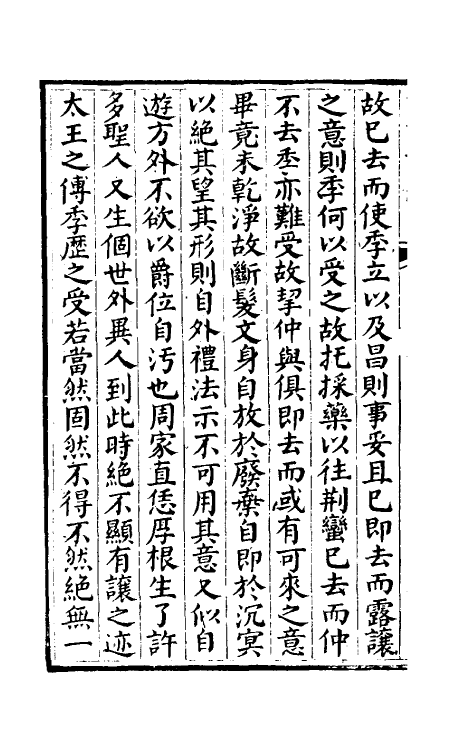 故已去而使季立以及昌則事妥且已即去而露讓
之意則季何以受之故托採藥以往荆蠻已去而仲
不去季亦難受故挈仲與俱即去而或有可來之意
畢竟未乾淨故斷髮文身自放於廢棄自即於沉冥
以絶其望其形則自外禮法示不可用其意又似自
遊方外不欲以爵位自汚也周家直恁厚根生了許
多聖人又生個世外異人到此時絶不顯有讓之迹
太王之傳季歷之受若當然固然不得不然絶無一